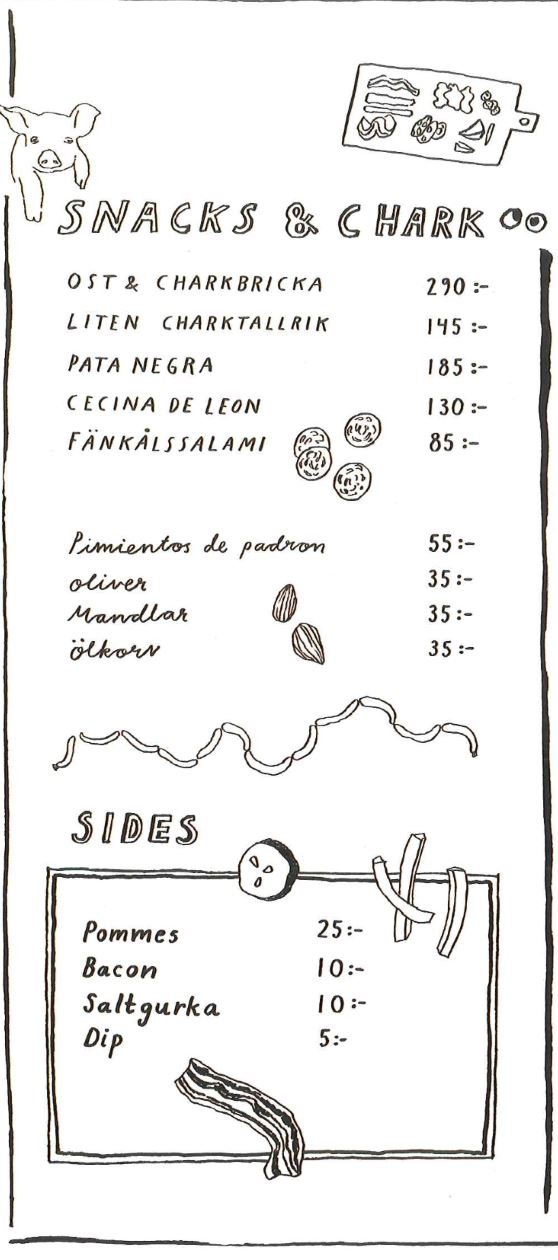 SNACKS & CHARK
OST & CHARKBRICKA 290:-
LITEN CHARKTALLRIK 145:-
PATA NEGRA 185:-
CECINA DE LEON 130:-
FÄNKÅLSSALAMI 85:-
Pimientos de padron 55:-
oliver 35:-
Mandlar 35:-
ölkorv 35:-
SIDES
Pommes 25:-
Bacon 10:-
Saltgurka 10:-
Dip 5:-